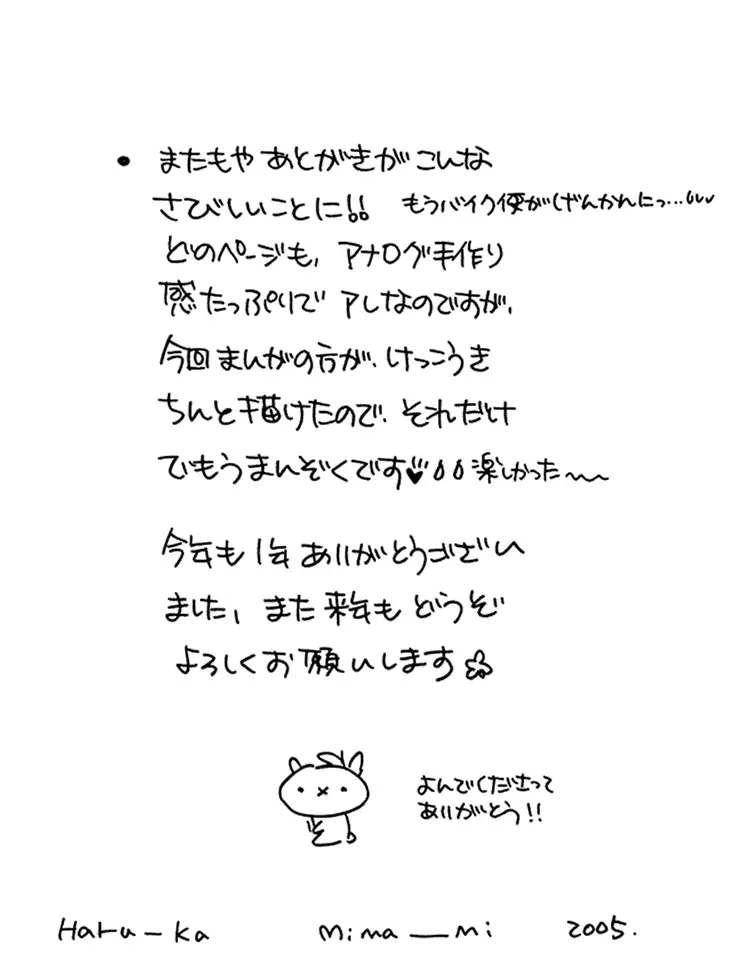 • またもや あとがきが こんな
さびしいことに!! もうバイク便がげんかれにっ…
どのページも、アナログ手作り
感たっぷりで アレなのですが、
今回まんがの方が、けっこうき
ちんと描けたので、それだけ
でもうまんぞくです♥ 楽しかった〜〜
今年も 1年 ありがとうござい
ました、また 来年も どうぞ
よろしくお願いします
よんでくださって
ありがとう!!
Haru-ka Mima__mi 2005.